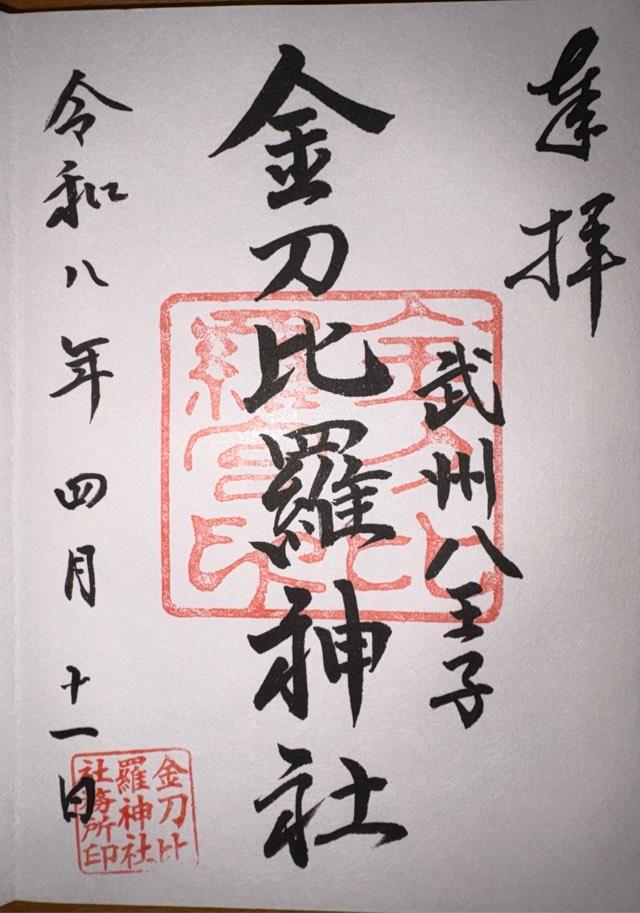 奉拝
武州八王子
金刀比羅神社
令和八年四月十一日
金刀比
羅神社
社務所印